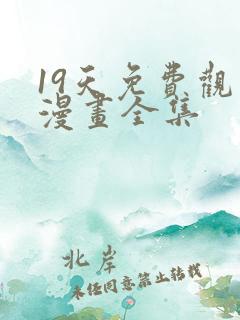 19天免費觀
漫畫全集
北岸
未经同意禁止转载